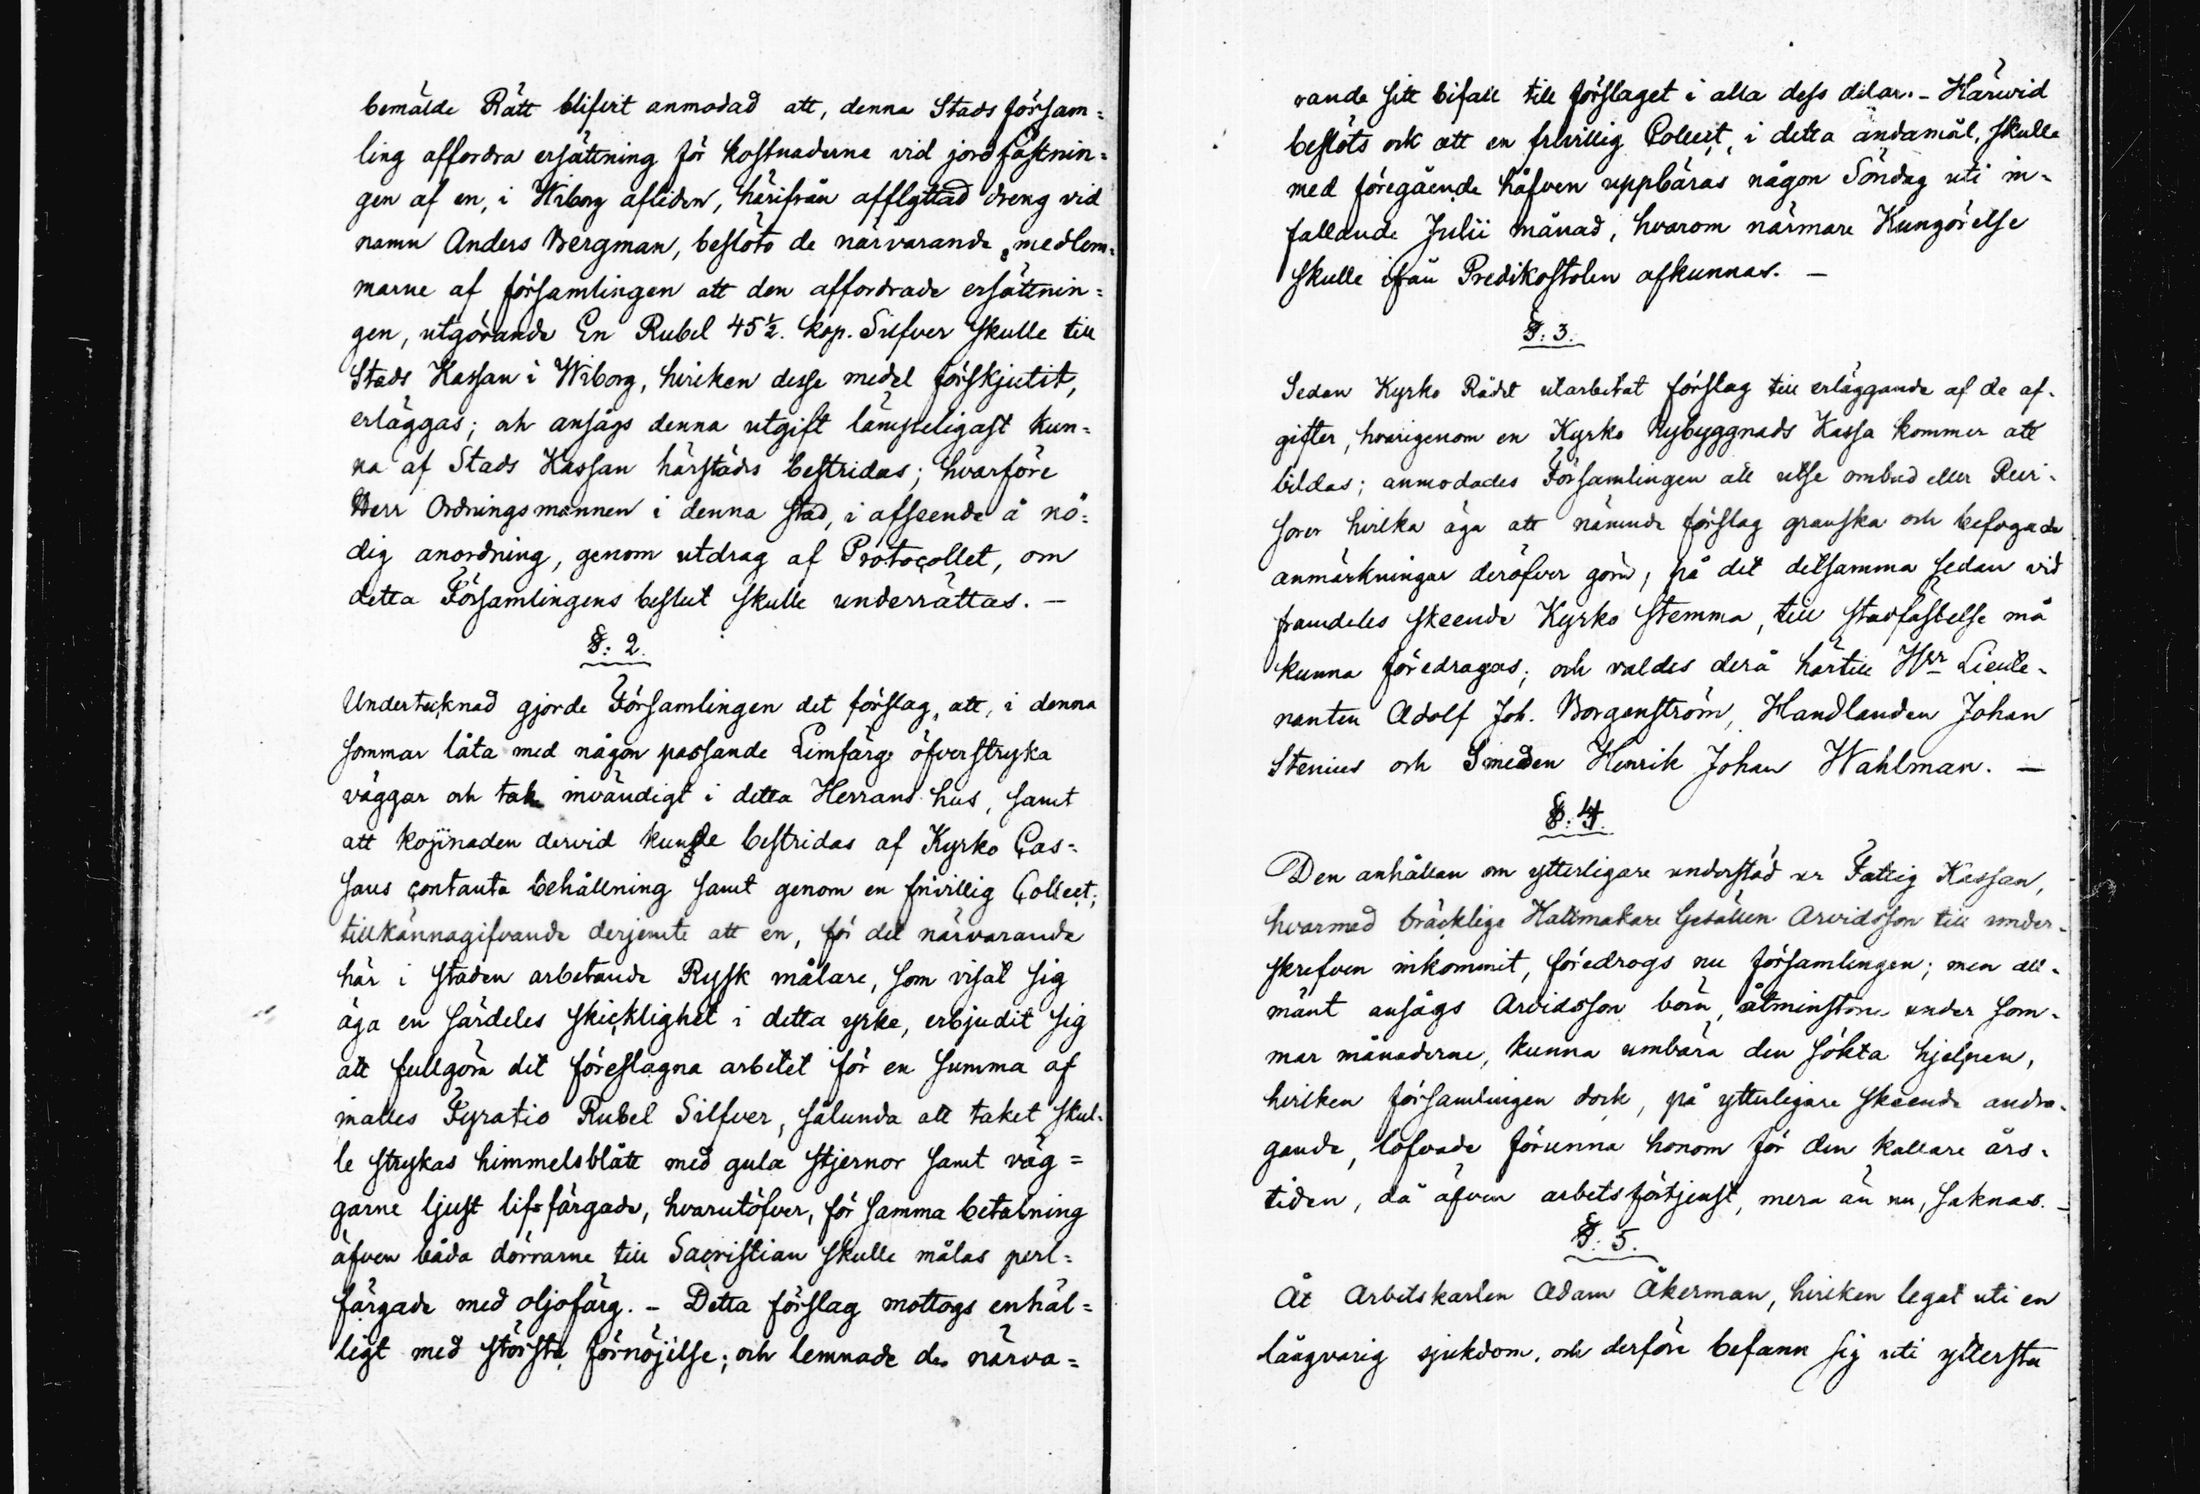 bemälde Rätt blifvit anmodad att, denna Stads försam=
ling affordra ersättning för kostnaderna vid jordfästnin=
gen af en, i Wiborg afliden, härifrån afflyttad dreng vid
namn Anders Bergman, beslöto de närvarande medlem=
marne af församlingen att den affordrade ersättnin=
gen, utgörande En Rubel 45½. kop. Silfver skulle till
Stads Kassan i Wiborg, hvilken desse medel förskjutit,
erläggas; och ansågs denna utgift lämpeligast kun=
na af Stads Kassan härstädes bestridas; hvarföre
Herr Ordningsmannen i denna stad, i afseende å nö=
dig anordning, genom utdrag af Protocollet, om
detta Församlingens beslut skulle underrättas. —
§: 2.
Undertecknad gjorde Församlingen det förslag, att, i denna
sommar låta med någon passande Limfärg öfverstryka
väggar och tak invändigt i detta Herrans hus, samt
att kostnaden dervid kunde bestridas af Kyrko Cas=
sans contanta behållning samt genom en frivillig Collect;
tillkännagifvande derjemte att en, för det närvarande
här i staden arbetande Rysk målare, som visat sig
äga en särdeles skicklighet i detta yrke, erbjudit sig
att fullgöra det föreslagna arbetet för en summa af
inalles Fyratio Rubel Silfver, sålunda att taket skul-
le strykas himmelsblått med gula stjernor samt väg=
garne ljust lifsfärgade, hvarutöfver, för samma betalning
äfven båda dörrarne till Sacristian skulle målas perl=
färgade med oljofärg. – Detta förslag mottogs enhäl=
ligt med största förnöjelse; och lemnade de närva=
rande sitt bifall till förslaget i alla dess delar. – Härvid
beslöts ock att en frivillig Collect, i detta ändamål, skulle
med föregående håfven uppbäras någon Söndag uti in-
fallande Julii månad, hvarom närmare Kungörelse
skulle ifrån Predikostolen afkunnas. –
§: 3.
Sedan Kyrko Rådet utarbetat förslag till erläggande af de af-
gifter, hvarigenom en Kyrko Nybyggnads Kassa kommer att
bildas; anmodades Församlingen att utse ombud eller Revi-
sorer hvilka äga att nämnde förslag granska och befogade
anmärkningar deröfver göra, på det detsamma sedan vid
framdeles skeende Kyrko stemma, till stadfästelse må
kunna föredragas; och valdes derå härtill Hrr Lieute-
nanten Adolf Joh. Borgenström, Handlanden Johan
Stenius och Smeden Henrik Johan Wahlman. —
§: 4.
Den anhållan om ytterligare understöd ur Fattig Kassan,
hvarmed bräcklige Hattmakare Gesällen Arvidsson till under-
skrefven inkommit, föredrogs nu församlingen; men all-
mänt ansågs Arvidsson böra, åtminstone under som-
mar månaderne, kunna umbära den sökta hjelpen,
hvilken församlingen dock, på ytterligare skeende andra-
gande, lofvade förunna honom för den kallare års-
tiden, då äfven arbetsförtjenst, mera än nu, saknas. –
§: 5.
Åt Arbetskarlen Adam Åkerman, hvilken legat uti en
långvarig sjukdom, och derföre befann sig uti yttersta